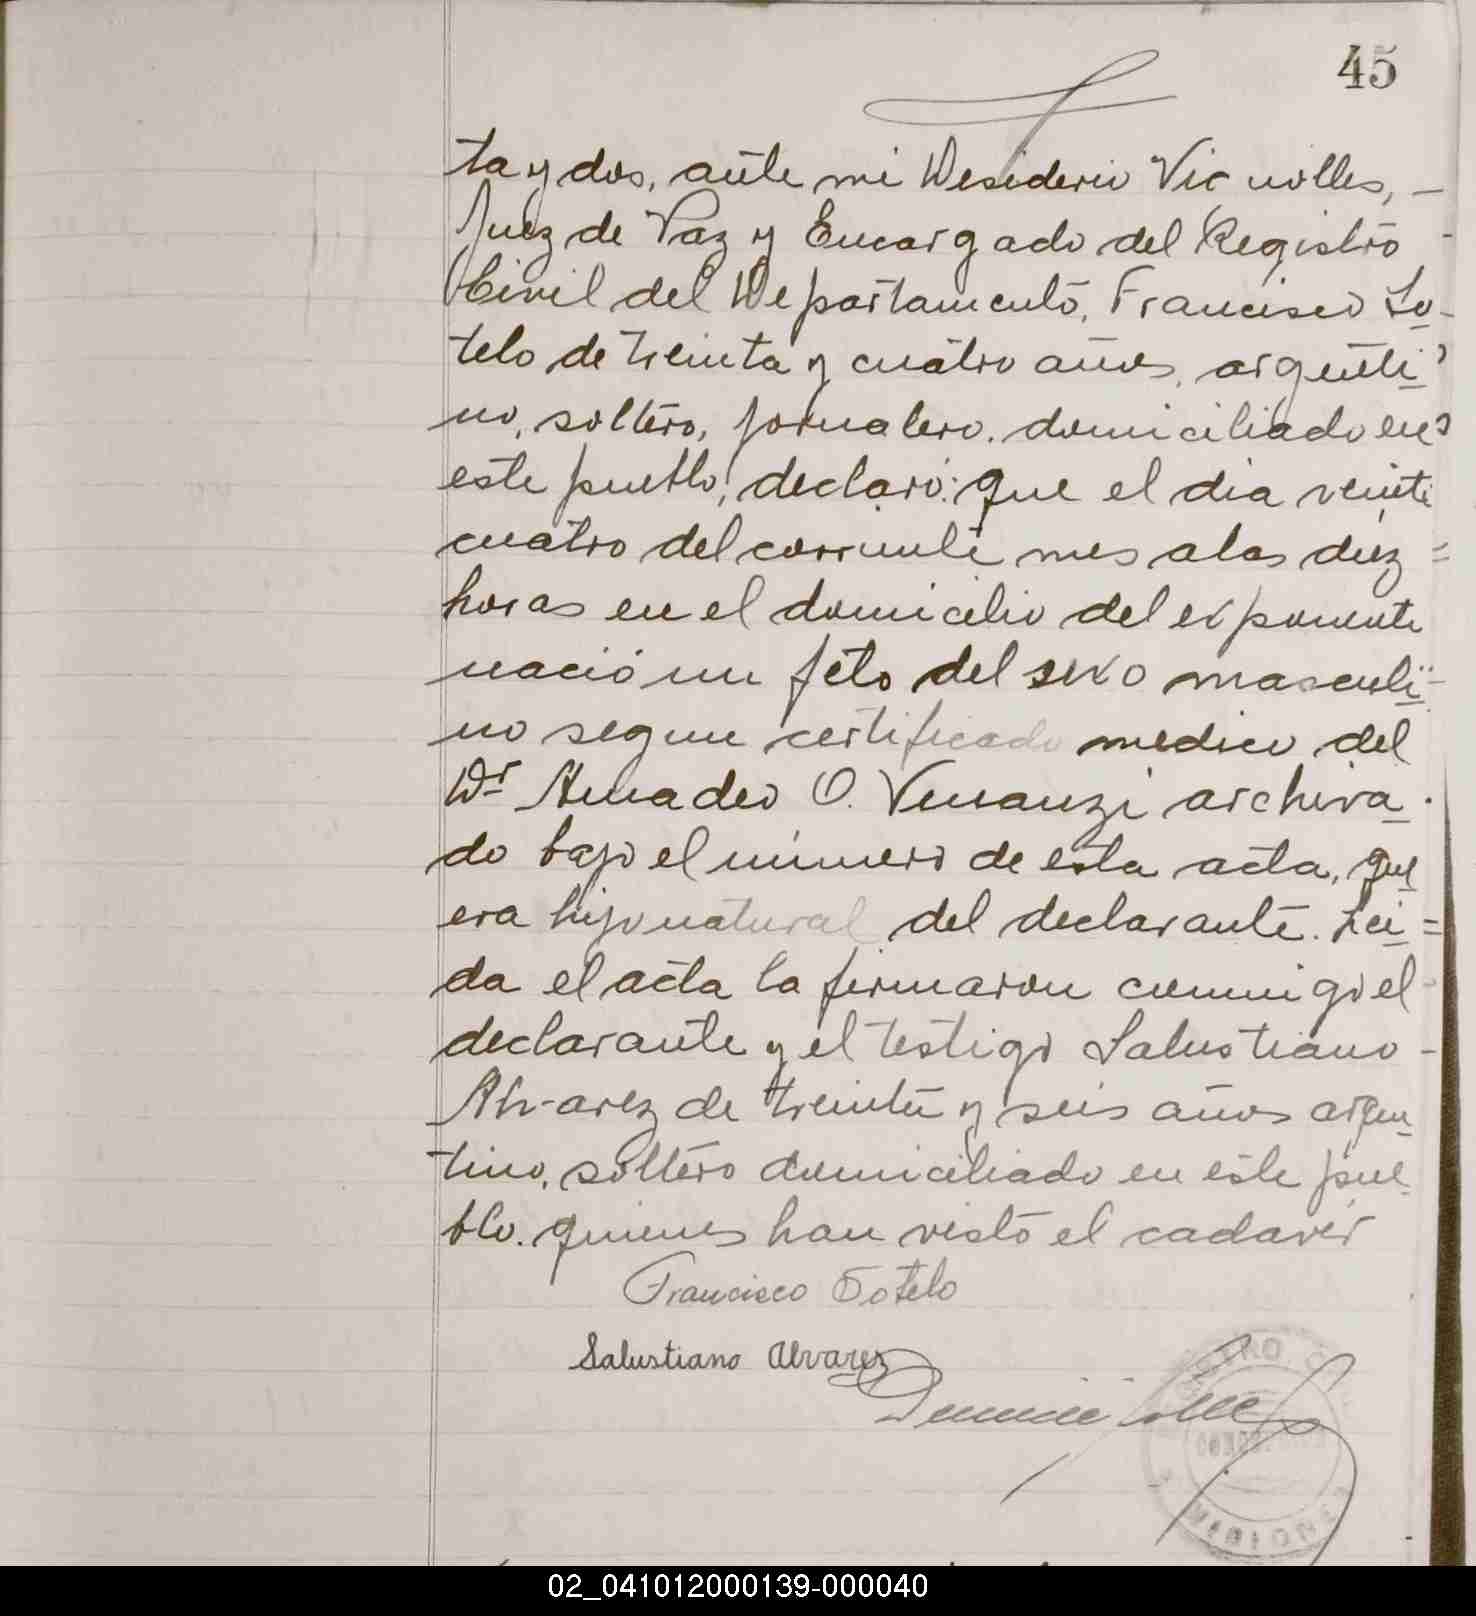 45
ta y dos, ante mi Desiderio Vic nolles, -
Juez de Paz y Encargado del Registro -
Civil del Departamento, Francisco So-
telo de treinta y cuatro años, argenti
no, soltero, jornalero. domiciliado en
este pueblo, declaró: que el dia veinti
cuatro del corriente mes a las diez =
horas en el domicilio del exponente
nació un feto del sexo masculi-
no segun certificado medico del
Dr Amadeo O. Venanzi archiva
do bajo el número de esta acta, que
era hijo natural del declarante. Lei=
da el acta la firmaron conmigo el
declarante y el testigo Salustiano -
Alvarez de treinta y seis años argen
tino, soltero domiciliado en este pue
blo. quienes han visto el cadaver
Francisco Sotelo
Salustiano Alvarez
MISIONES
02_041012000139-000040